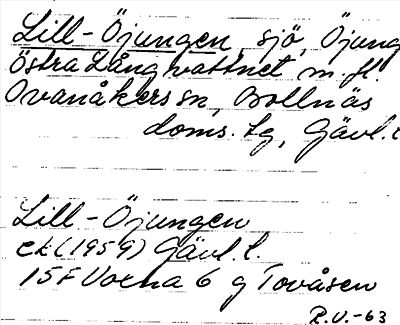 Lill-Öjungen, sjö, Öjung
Östra Långvattnet m. fl.
Ovanåkers sn, Bollnäs
doms. lg, Gävl. l
Lill-Öjungen
ek (1959) Gävl. l.
15F Voxna 6 g Tovåsen
R.V.-63